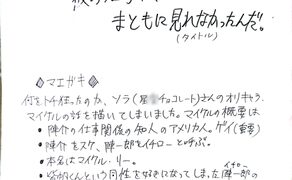 まともに見れなかったんだ。
(タイトル)
◇マエガキ◇
何をトチ狂ったのか、ソラ(星 チョコレート)さんのオリキャラ.
マイケルの話を描いてしまいました。マイケルの概要は
• 陣介の仕事関係の知人のアメリカ人。ゲイ(重要)
• 陣介をスケ、陣一郎をイチローと呼ぶ。
• 本名はマイケル・リー。
くんという同性を好きになってしま
イチロー